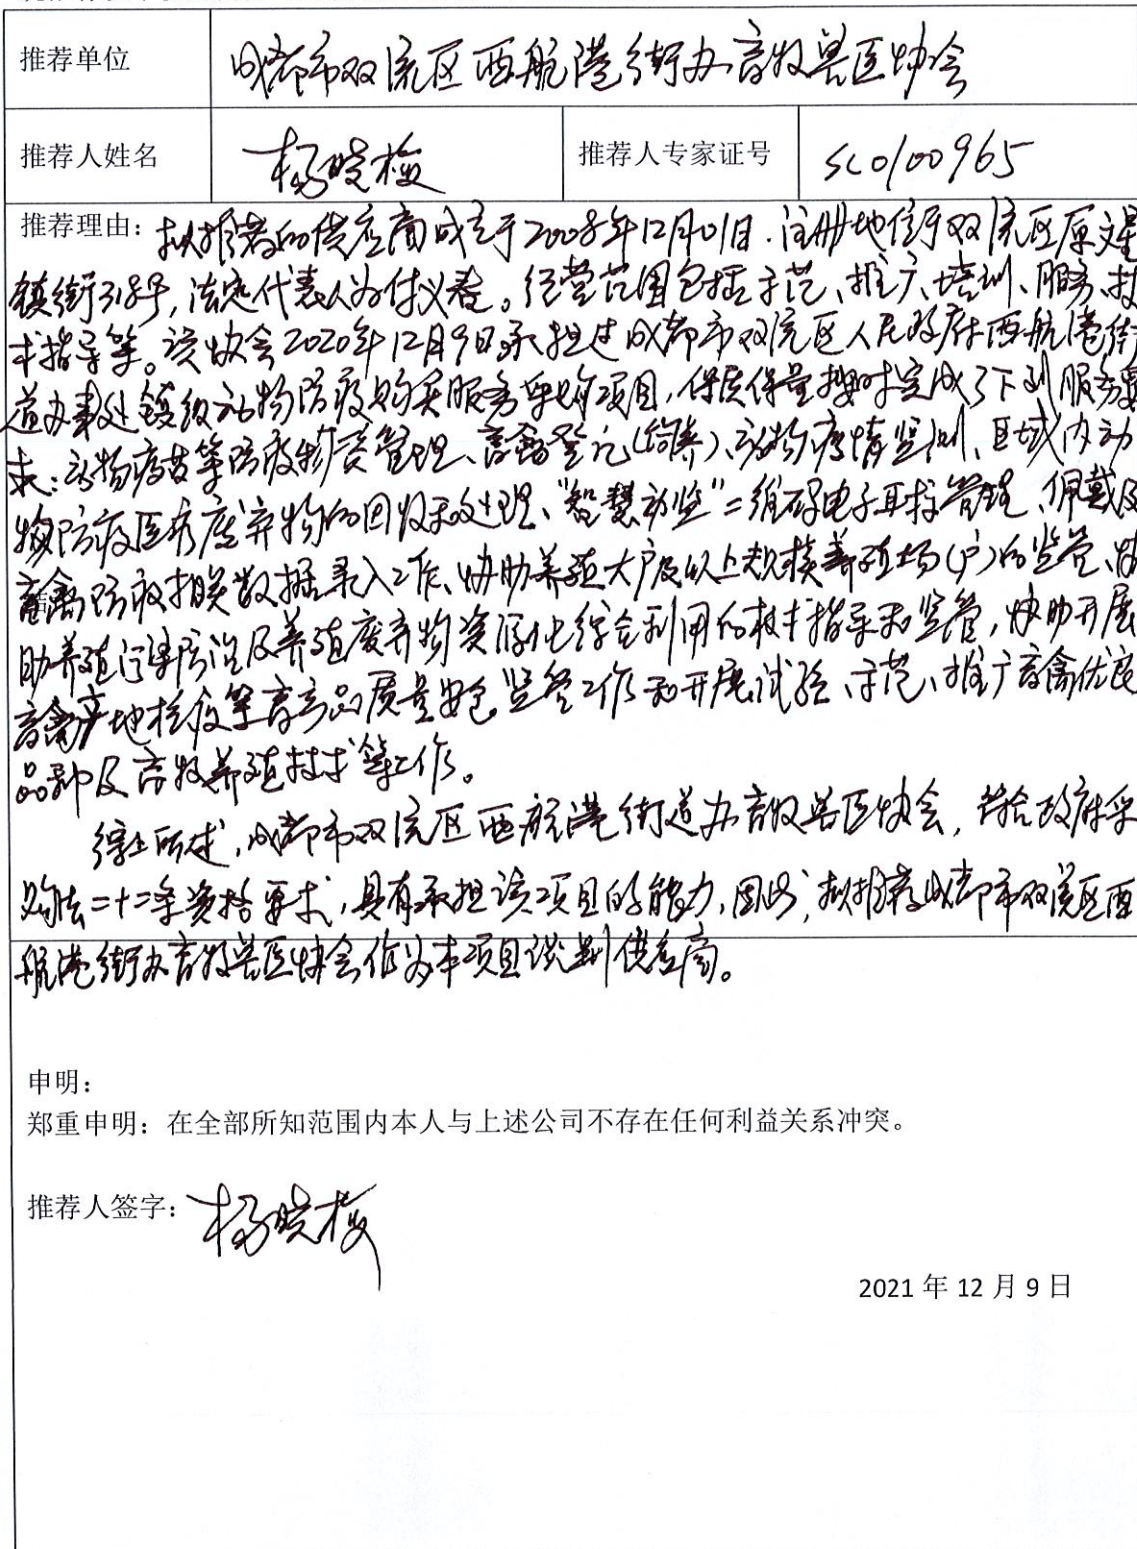 推荐单位 成都市双流区西航港街办畜牧兽医协会
推荐人姓名 杨晓梅 推荐人专家证号 SC0100965
推荐理由：拟推荐的供应商成立于2008年12月01日.注册地位于双流区原文星
镇街318号,法定代表人为付义春。经营范围包括示范、推广、培训、服务、技
术指导等。该协会2020年12月9日承担过成都市双流区人民政府西航港街
道办事处镇级动物防疫购买服务采购项目,保质保量按时完成了下列服务要
求:动物疫苗等防疫物资管理、畜禽登记(饲养)、动物疫情监测、区域内动
物防疫医疗废弃物的回收和处理、"智慧动监"二维码电子耳标管理、佩戴及
畜禽防疫相关数据录入工作、协助养殖大户及以上规模养殖场(户)的监管、协
助养殖污染防治及养殖废弃物资源化综合利用的技术指导和监管,协助开展
畜禽产地检疫等畜产品质量安全监管工作和开展试验、示范、推广畜禽优良
品种及畜牧养殖技术等工作。
综上所述,成都市双流区西航港街道办畜牧兽医协会,符合政府采
购法二十二条资格要求,具有承担该项目的能力,因此,拟推荐成都市双流区西
航港街办畜牧兽医协会作为本项目谈判供应商。
申明：
郑重申明：在全部所知范围内本人与上述公司不存在任何利益关系冲突。
推荐人签字：杨晓梅
2021 年 12 月 9 日